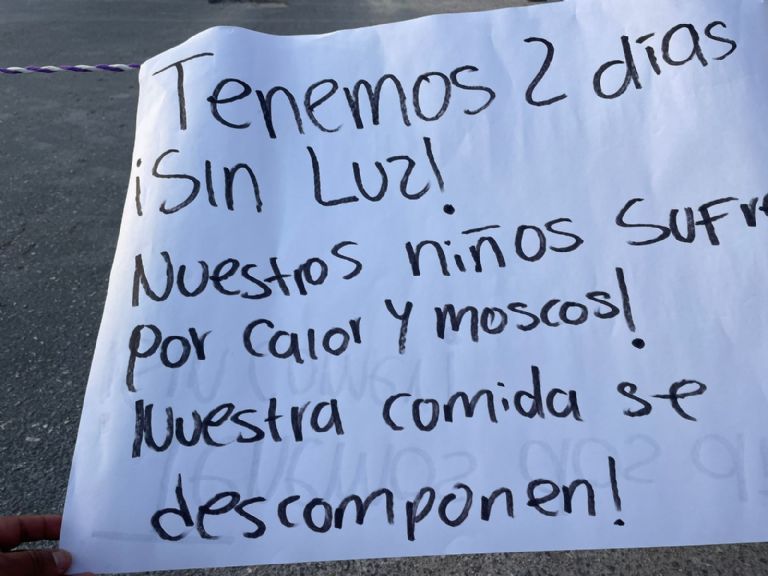 Tenemos 2 días
¡Sin Luz!
Nuestros niños
por calor y moscos!
Nuestra comida se
descomponen!